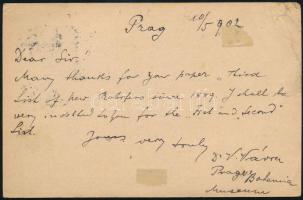 Prag 10/5 902
Dear Sir!
Many thanks for your paper „Third
List of new Rotifers since 1889. I shall be
very indebted to you for the „First and Second"
List.
Yours very truly
Dr. V. Vávra
Prague Bohemia
Museum